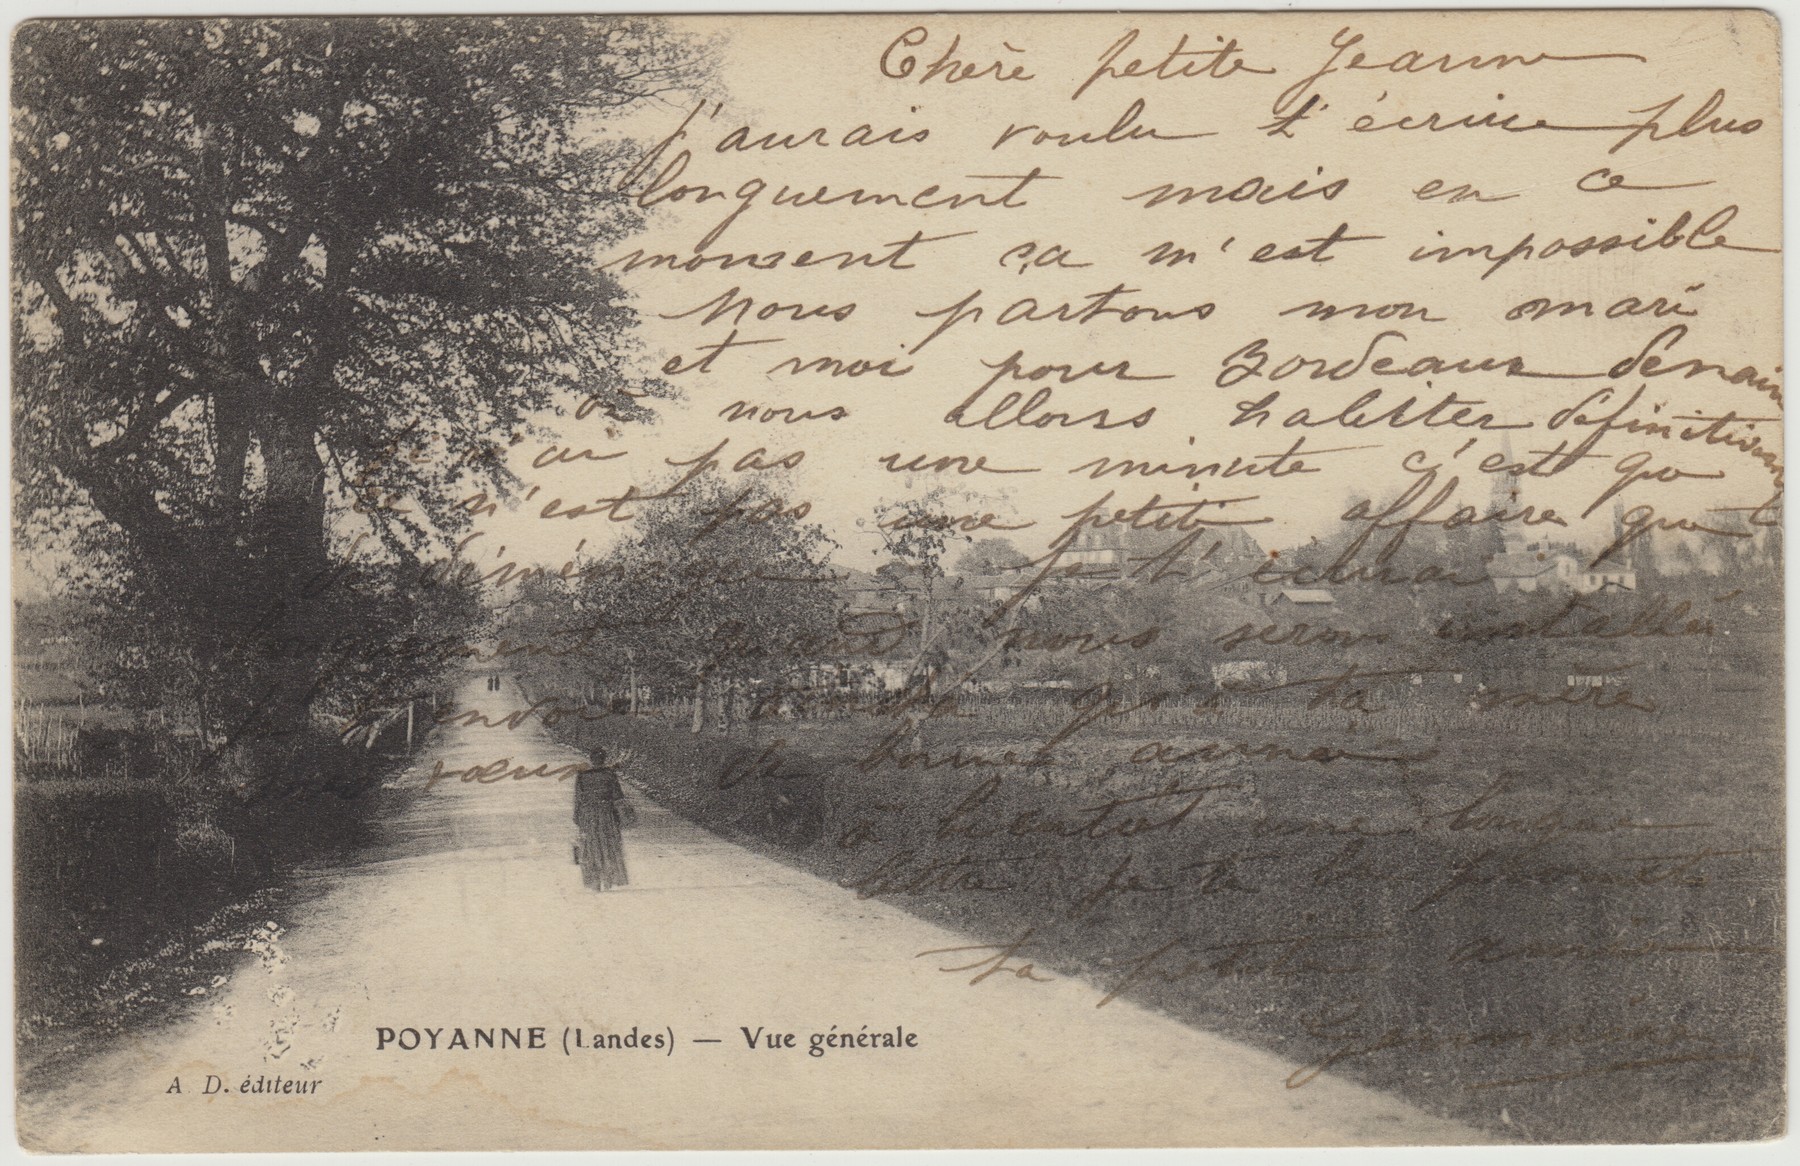 Chère petite Jeanne
J'aurais voulu t'écrire plus
longuement mais en ce
moment ça m'est impossible
Nous partons mon mari
et moi pour Bordeaux demain
où nous allons habiter définitivement
Je n'ai pas une minute c'est que
ce n'est pas une petite affaire que
déménager je t'écrirai
longuement quand nous serons installés
Je t'envoie ainsi qu'à ta mère
mes vœux de bonne année
à bientôt une longue
lettre je te la promets
ta petite amie
Germaine
POYANNE (Landes) — Vue générale
A D. éditeur